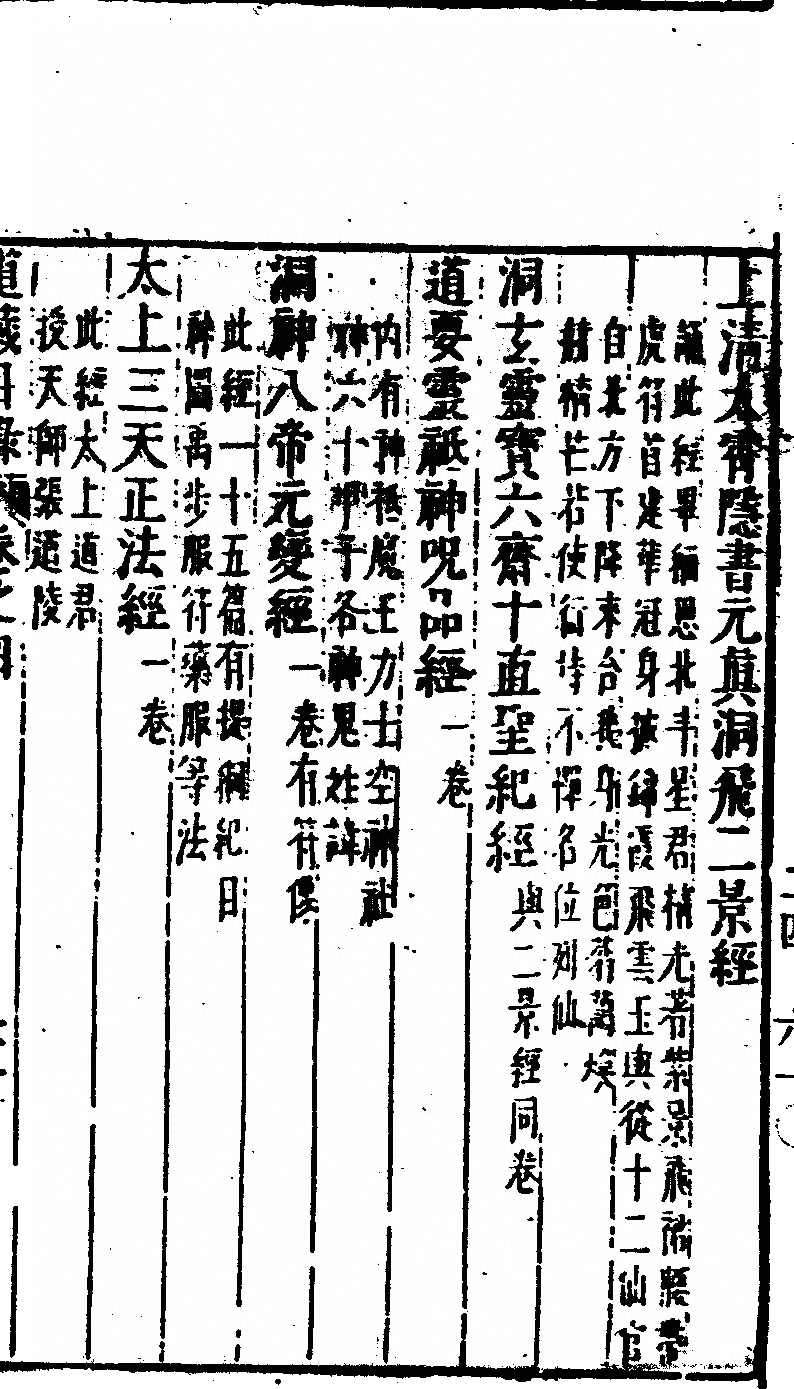 上清太霄隱書元真洞飛二景經
誦此經畢緬思北斗星君精光若紫景飛裙
虎符首建華冠身披綉霞飛雲玉輿從十二仙官
自北方下降來台我身光色蓊藹煥
精芒若使衛侍不憚名位列仙
洞玄靈寶六齋十直聖紀經與二景經同卷
道要靈祇神呪品經一卷
内有神祇魔王力士空神社
神六十甲子各神鬼姓諱
洞神八帝元變經一卷有符像
此經一十五篇有提綱紀目
神圖禹步服符藥服等法
太上三天正法經一卷
此經太上道君
授天師張道陵
道藏目錄卷之四